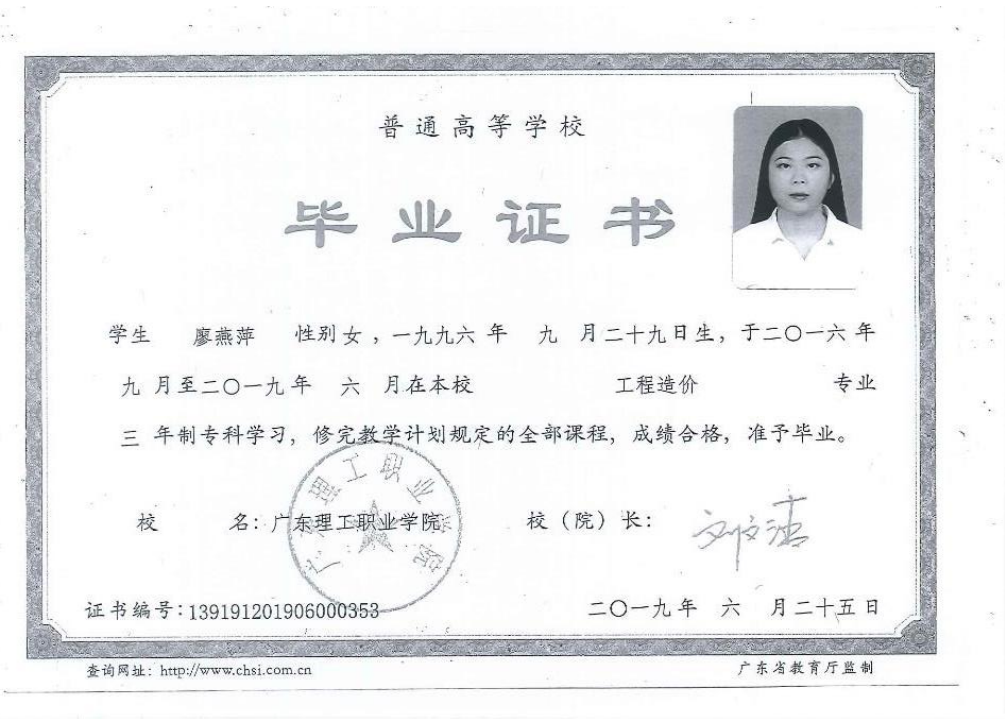 普通高等学校
毕业证书
学生 廖燕萍 性别女，一九九六年 九 月二十九日生，于二〇一六年
九 月至二〇一九年 六 月在本校 工程造价 专业
三 年制专科学习，修完教学计划规定的全部课程，成绩合格，准予毕业。
广东理工职业学院
校 名：广东理工职业学院 校（院）长：
证书编号：139191201906000353 二〇一九年 六 月二十五日
查询网址：http://www.chsi.com.cn 广东省教育厅监制